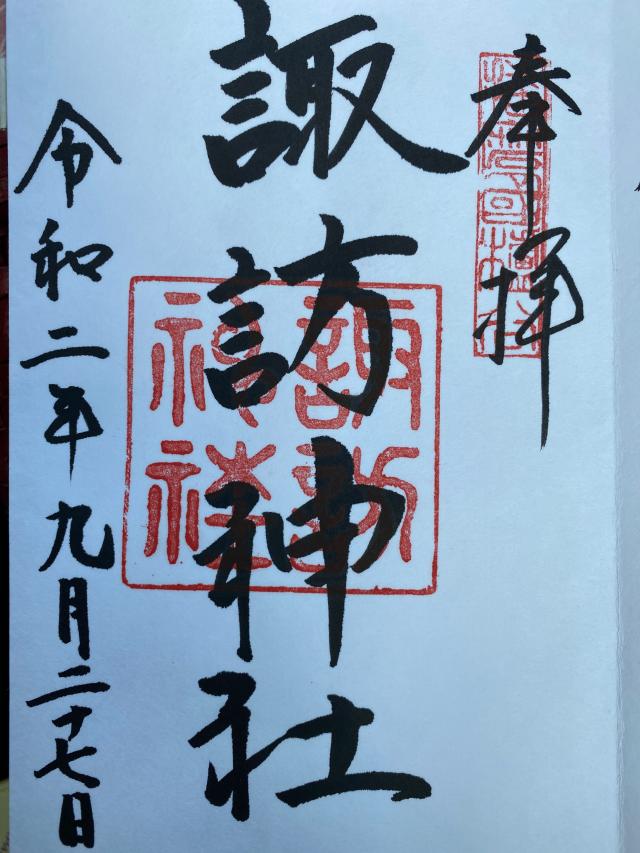 奉拝
諏訪神社
諏訪神社
令和二年九月二十七日